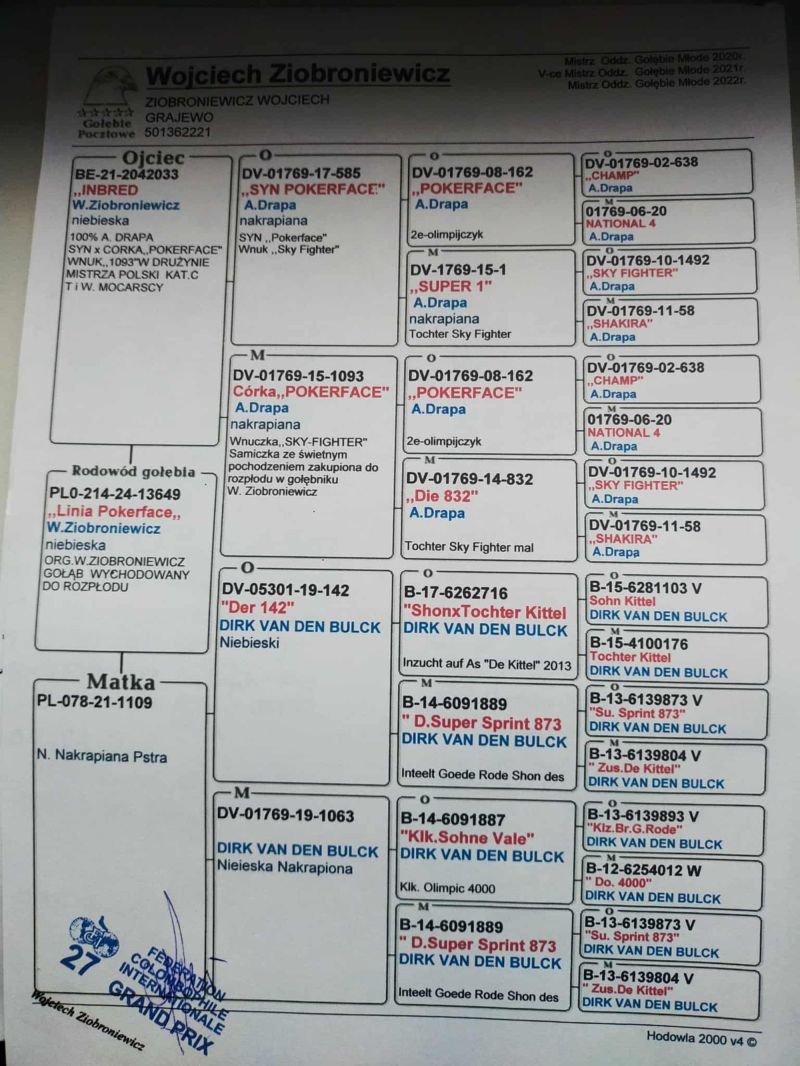 Wojciech Ziobroniewicz
ZIOBRONIEWICZ WOJCIECH
GRAJEWO
501362221
Gołębie
Pocztowe
Mistrz Oddz. Gołębie Młode 2020r.
V-ce Mistrz Oddz. Gołębie Młode 2021r.
Mistrz Oddz. Gołębie Młode 2022r.
Ojciec
BE-21-2042033
,,INBRED
W.Ziobroniewicz
niebieska
100% A. DRAPA
SYN x CORKA,,POKERFACE"
WNUK,,1093"W DRUŻYNIE
MISTRZA POLSKI KAT.C
T i W. MOCARSCY
Rodowód gołębia
PL0-214-24-13649
,,Linia Pokerface,,
W.Ziobroniewicz
niebieska
ORG.W.ZIOBRONIEWICZ
GOŁĄB WYCHODOWANY
DO ROZPŁODU
Matka
PL-078-21-1109
N. Nakrapiana Pstra
O
DV-01769-17-585
,,SYN POKERFACE"
A.Drapa
nakrapiana
SYN ,,Pokerface"
Wnuk ,,Sky Fighter"
M
DV-01769-15-1093
Córka,,POKERFACE"
A.Drapa
nakrapiana
Wnuczka,,SKY-FIGHTER"
Samiczka ze świetnym
pochodzeniem zakupiona do
rozpłodu w gołębniku
W. Ziobroniewicz
O
DV-05301-19-142
"Der 142"
DIRK VAN DEN BULCK
Niebieski
M
DV-01769-19-1063
DIRK VAN DEN BULCK
Nieieska Nakrapiona
O
DV-01769-08-162
,,POKERFACE"
A.Drapa
2e-olimpijczyk
M
DV-1769-15-1
,,SUPER 1"
A.Drapa
nakrapiana
Tochter Sky Fighter
O
DV-01769-08-162
,,POKERFACE"
A.Drapa
2e-olimpijczyk
M
DV-01769-14-832
,,Die 832"
A.Drapa
Tochter Sky Fighter mal
O
B-17-6262716
"ShonxTochter Kittel
DIRK VAN DEN BULCK
Inzucht auf As "De Kittel" 2013
M
B-14-6091889
" D.Super Sprint 873
DIRK VAN DEN BULCK
Inteelt Goede Rode Shon des
O
B-14-6091887
"Klk.Sohne Vale"
DIRK VAN DEN BULCK
Klk. Olimpic 4000
M
B-14-6091889
" D.Super Sprint 873
DIRK VAN DEN BULCK
Inteelt Goede Rode Shon des
O
DV-01769-02-638
,,CHAMP"
A.Drapa
M
01769-06-20
NATIONAL 4
A.Drapa
O
DV-01769-10-1492
,,SKY FIGHTER"
A.Drapa
M
DV-01769-11-58
,,SHAKIRA"
A.Drapa
O
DV-01769-02-638
,,CHAMP"
A.Drapa
M
01769-06-20
NATIONAL 4
A.Drapa
O
DV-01769-10-1492
,,SKY FIGHTER"
A.Drapa
M
DV-01769-11-58
,,SHAKIRA"
A.Drapa
O
B-15-6281103 V
Sohn Kittel
DIRK VAN DEN BULCK
M
B-15-4100176
Tochter Kittel
DIRK VAN DEN BULCK
O
B-13-6139873 V
"Su. Sprint 873"
DIRK VAN DEN BULCK
M
B-13-6139804 V
" Zus.De Kittel"
DIRK VAN DEN BULCK
O
B-13-6139893 V
"Klz.Br.G.Rode"
DIRK VAN DEN BULCK
M
B-12-6254012 W
" Do. 4000"
DIRK VAN DEN BULCK
O
B-13-6139873 V
"Su. Sprint 873"
DIRK VAN DEN BULCK
M
B-13-6139804 V
" Zus.De Kittel"
DIRK VAN DEN BULCK
27
FEDERATION
COLOMBOPHILE
INTERNATIONALE
GRAND PRIX
Wojciech Ziobroniewicz
Hodowla 2000 v4 ©